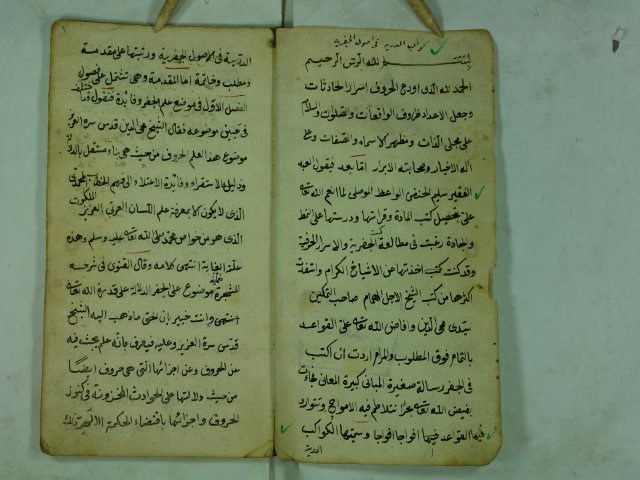 كواكب الدرية في اصول الجفرية
بسم الله الرحمن الرحيم
الحمد لله الذى اودع الحروف اسرار الحادثات
وجعل الاعداد ظروف الواقعات والصلوة والسلام
على مجلى الذات ومظهر الاسماء والصفات وعلى
آله الاخيار وصحابته الابرار اما بعد فيقول العبد
الفقير سليم الحنفى الواعظ الموصلى لما انعم الله تعالى
على بتحصيل كتب المادة وقرائتها ودرستها على النمط
والجادة رغبت فى مطالعة كتب الجفرية والاسرار الحرفية
وقد كنت كتب اخذتها عن الاشياخ الكرام واتنقت
اكثرها من كتب الشيخ الاجل الهمام صاحب التمكين
سيدى محى الدين وافاض الله تعالى على القواعد
بالتمام فوق المطلوب والمرام اردت ان اكتب
فى الجفر رسالة صغيرة المبانى كبيرة المعانى فجائت
بفيض الله تعالى بحرا تتلاطم فيه الامواج وتتوارد
فيها القواعد فيها افواجا افواجا وسميتها الكواكب
الدرية
الدرية فى الاصول الجفرية ورتبتها على مقدمة
ومطلب وخاتمة اما المقدمة وهى تشتمل على فصول
الفصل الاول فى موضع علم الجفر وفائدة فنقول
فى تعيين موضوعه فقال الشيخ محى الدين قدس سره العزيز
موضوع هذا العلم الحروف من حيث هى بناء مستقل بالدلالة
ودليله الاستقراء وفائدة الاعتلاء الى فهم الخطاب المحمدى
الذى لا يكون الا بمعرفة علم اللسان العربى العزيز
الذى هو من خواص محمد صلى الله تعالى عليه وسلم وهذه
علة الغاية انتهى كلامه وقال القنوى فى شرحه
للشجرة موضوع على الجفر الدلالة على قدرة الله تعالى
انتهى وانت خبير بان الحق ما ذهب اليه الشيخ
قدس سره العزيز وعليه فيعرف بانه علم يبحث فيه
عن الحروف وعن اجزائها التى هى حروف ايضا
من حيث دلالتها على الحوادث المخزونة فى كنوز
الحروف واجزائها باقتضاء الحكمة الالهية